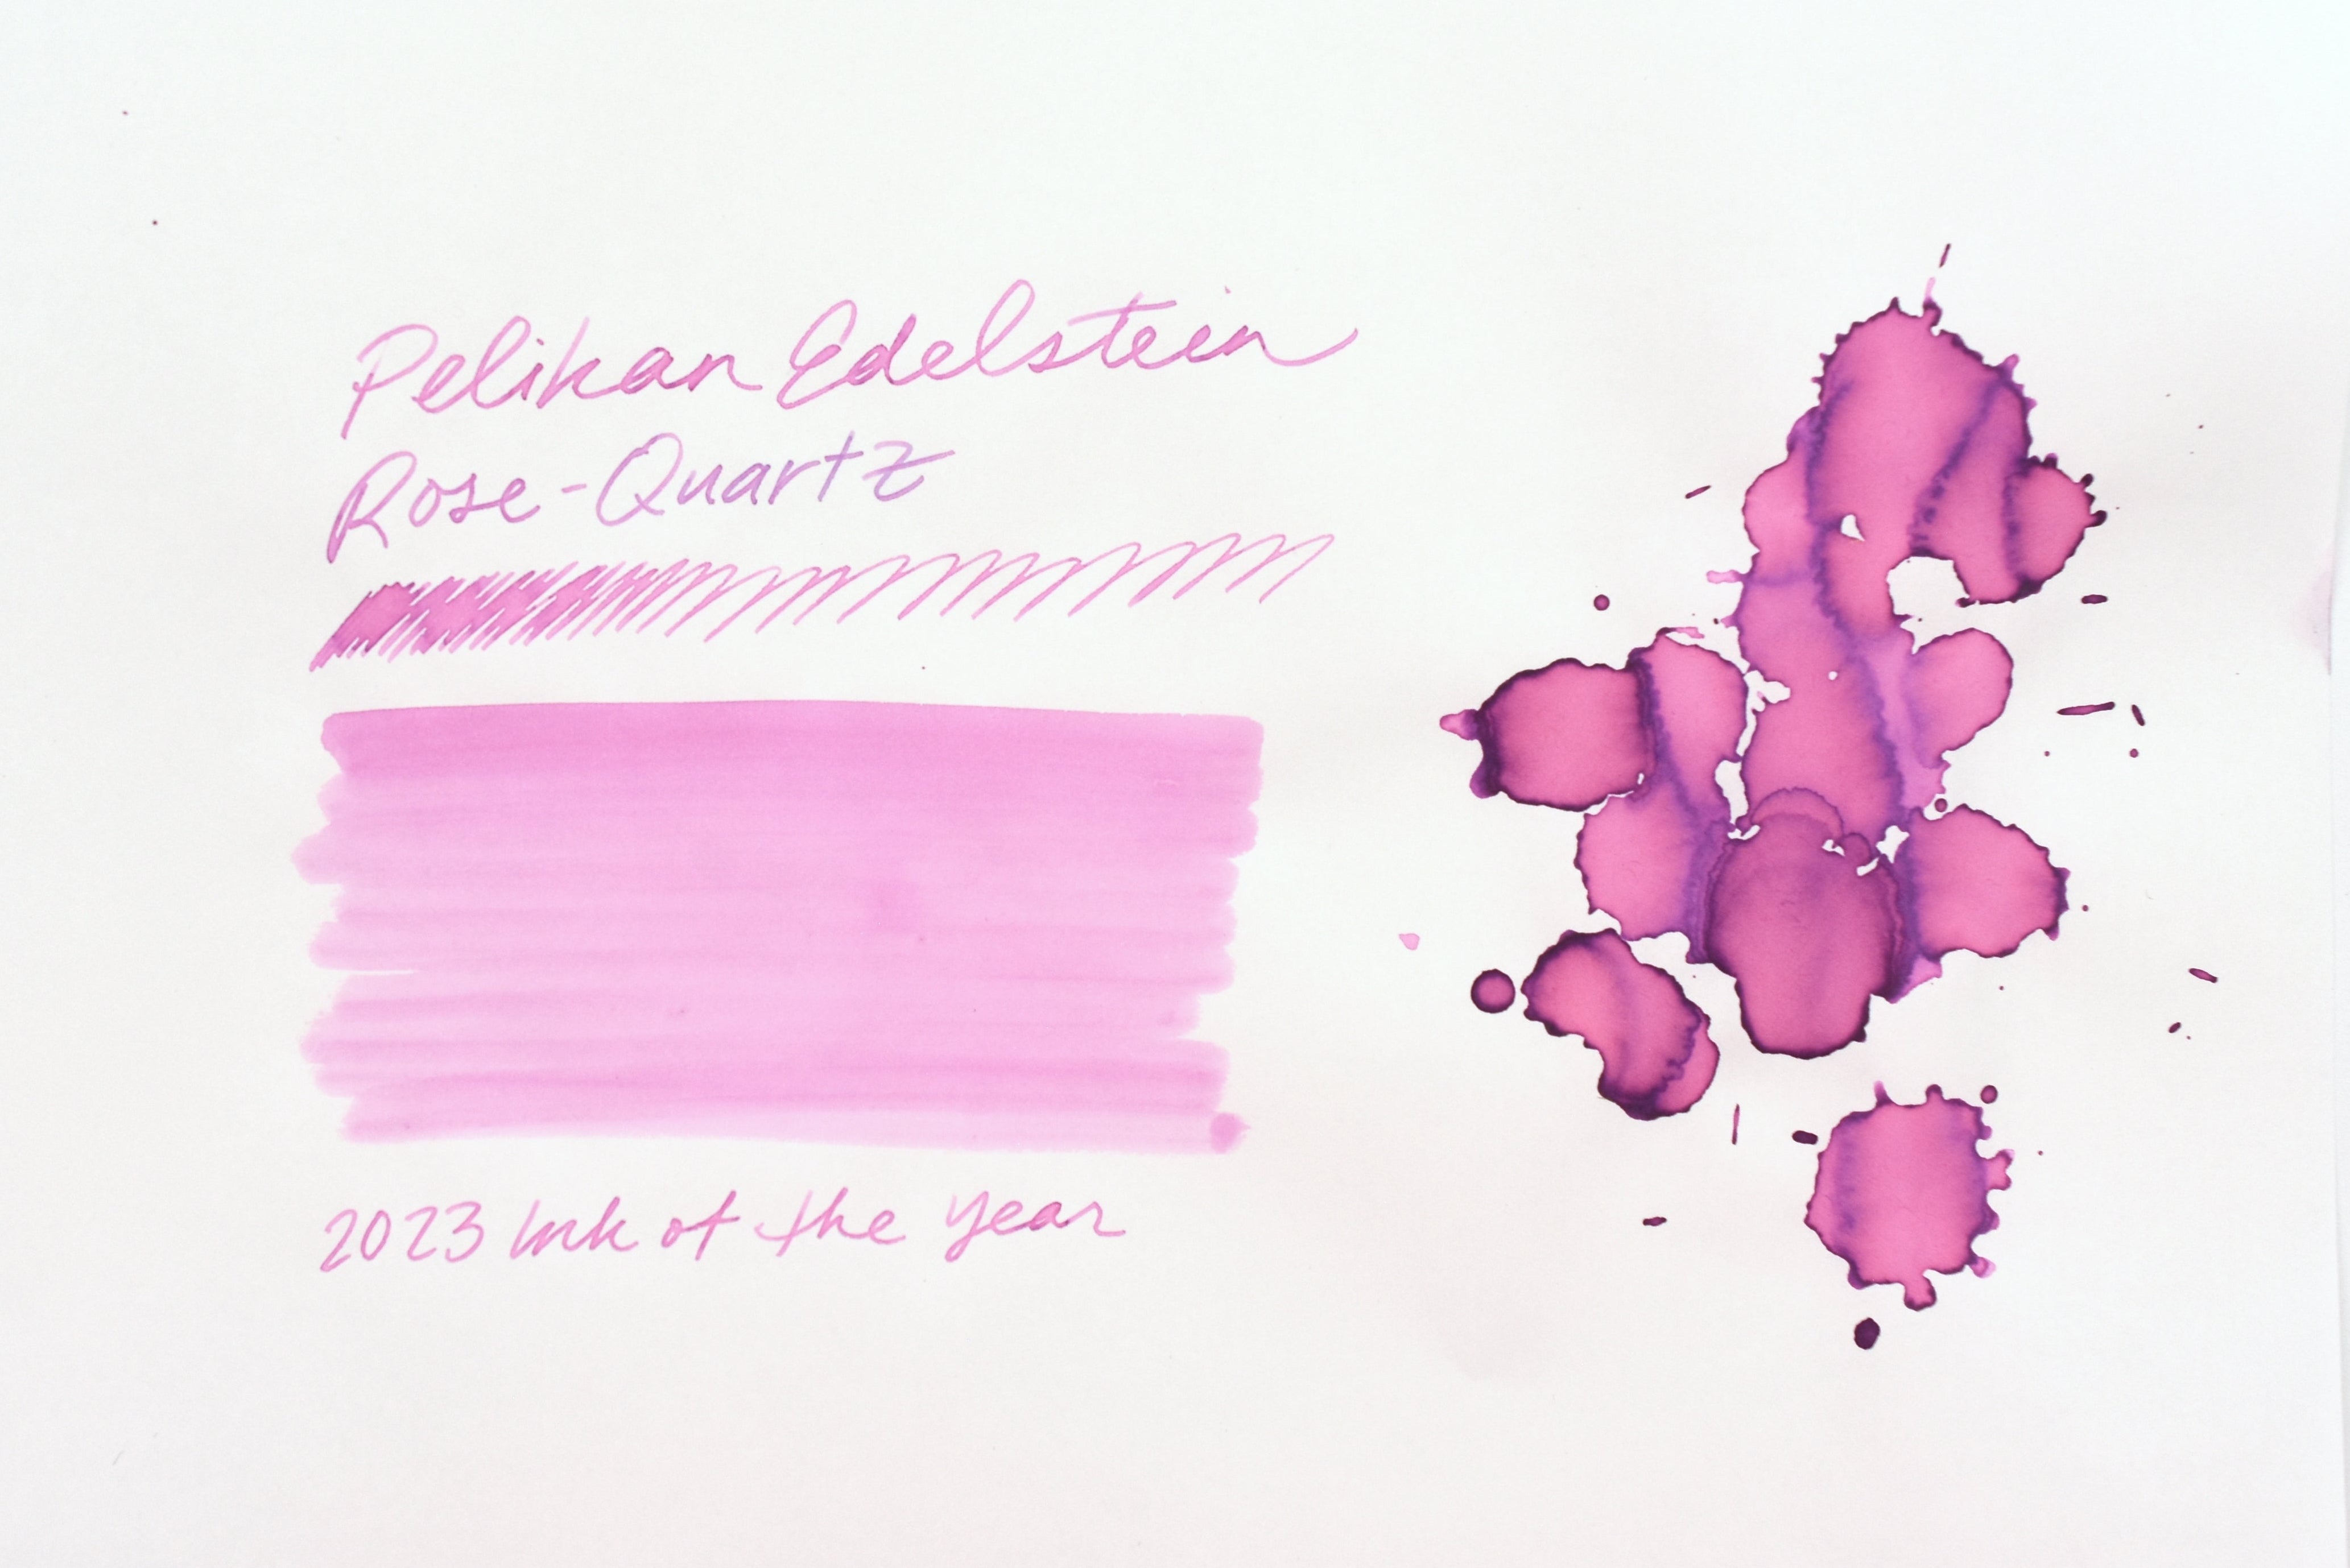 Pelikan Edelstein
Rose-Quartz
2023 Ink of the year